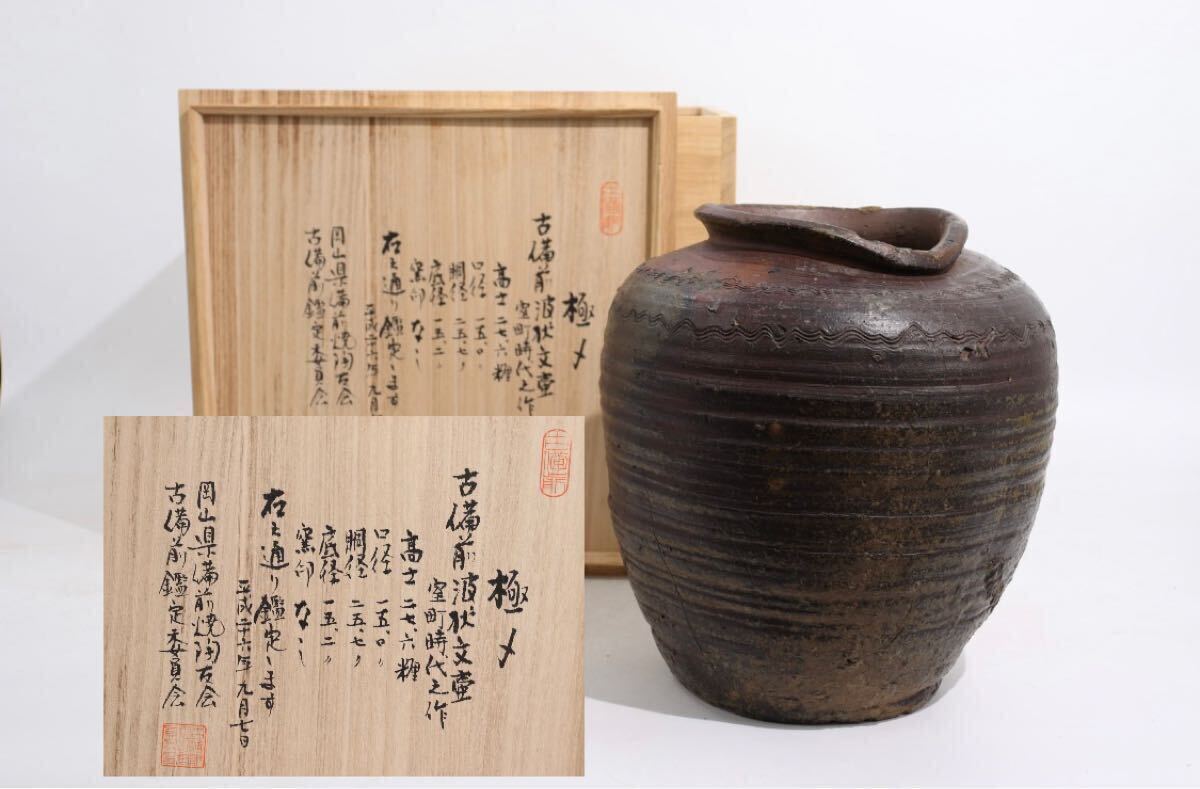 極〆
古備前波状文壷
室町時代之作
高士 二七、六糎
口径 一五、〇〃
胴径 二五、七〃
底径 一五、二〃
窯印 なし
右之通り鑑定します
平成二十六年九月
岡山県備前焼陶友会
古備前鑑定委員会
極〆
古備前波状文壷
室町時代之作
高士 二七、六糎
口径 一五、〇〃
胴径 二五、七〃
底径 一五、二〃
窯印 なし
右之通り鑑定します
平成二十六年九月七日
岡山県備前焼陶友会
古備前鑑定委員会